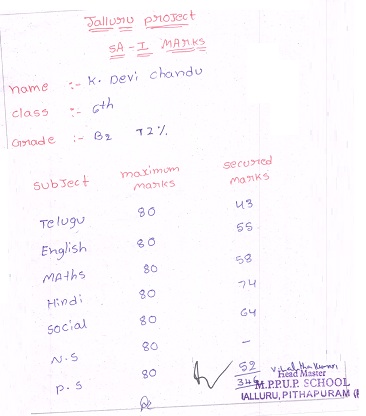 Jalluru project
SA-I Marks
name :- K. Devi Chandu
class :- 6th
Grade :- B2 72%
subject maximum marks secured marks
Telugu 80 43
English 80 55
Maths 80 58
Hindi 80 74
social 80 64
N.S 80 -
P.S 80 52
346
Head Master
M.P.P.U.P. SCHOOL
JALLURU, PITHAPURAM (